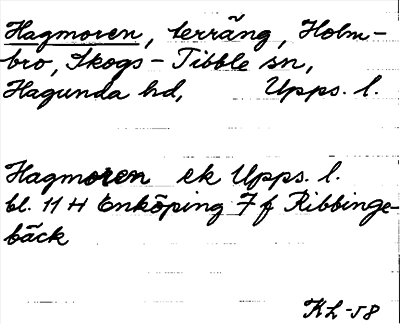 Hagmoren, terräng, Holm-
bro, Skogs-Tibble sn,
Hagunda hd, Upps. l.
Hagmoren ek Upps. l.
bl. 11 H Enköping 7 f Ribbinge-
bäck
KL-58